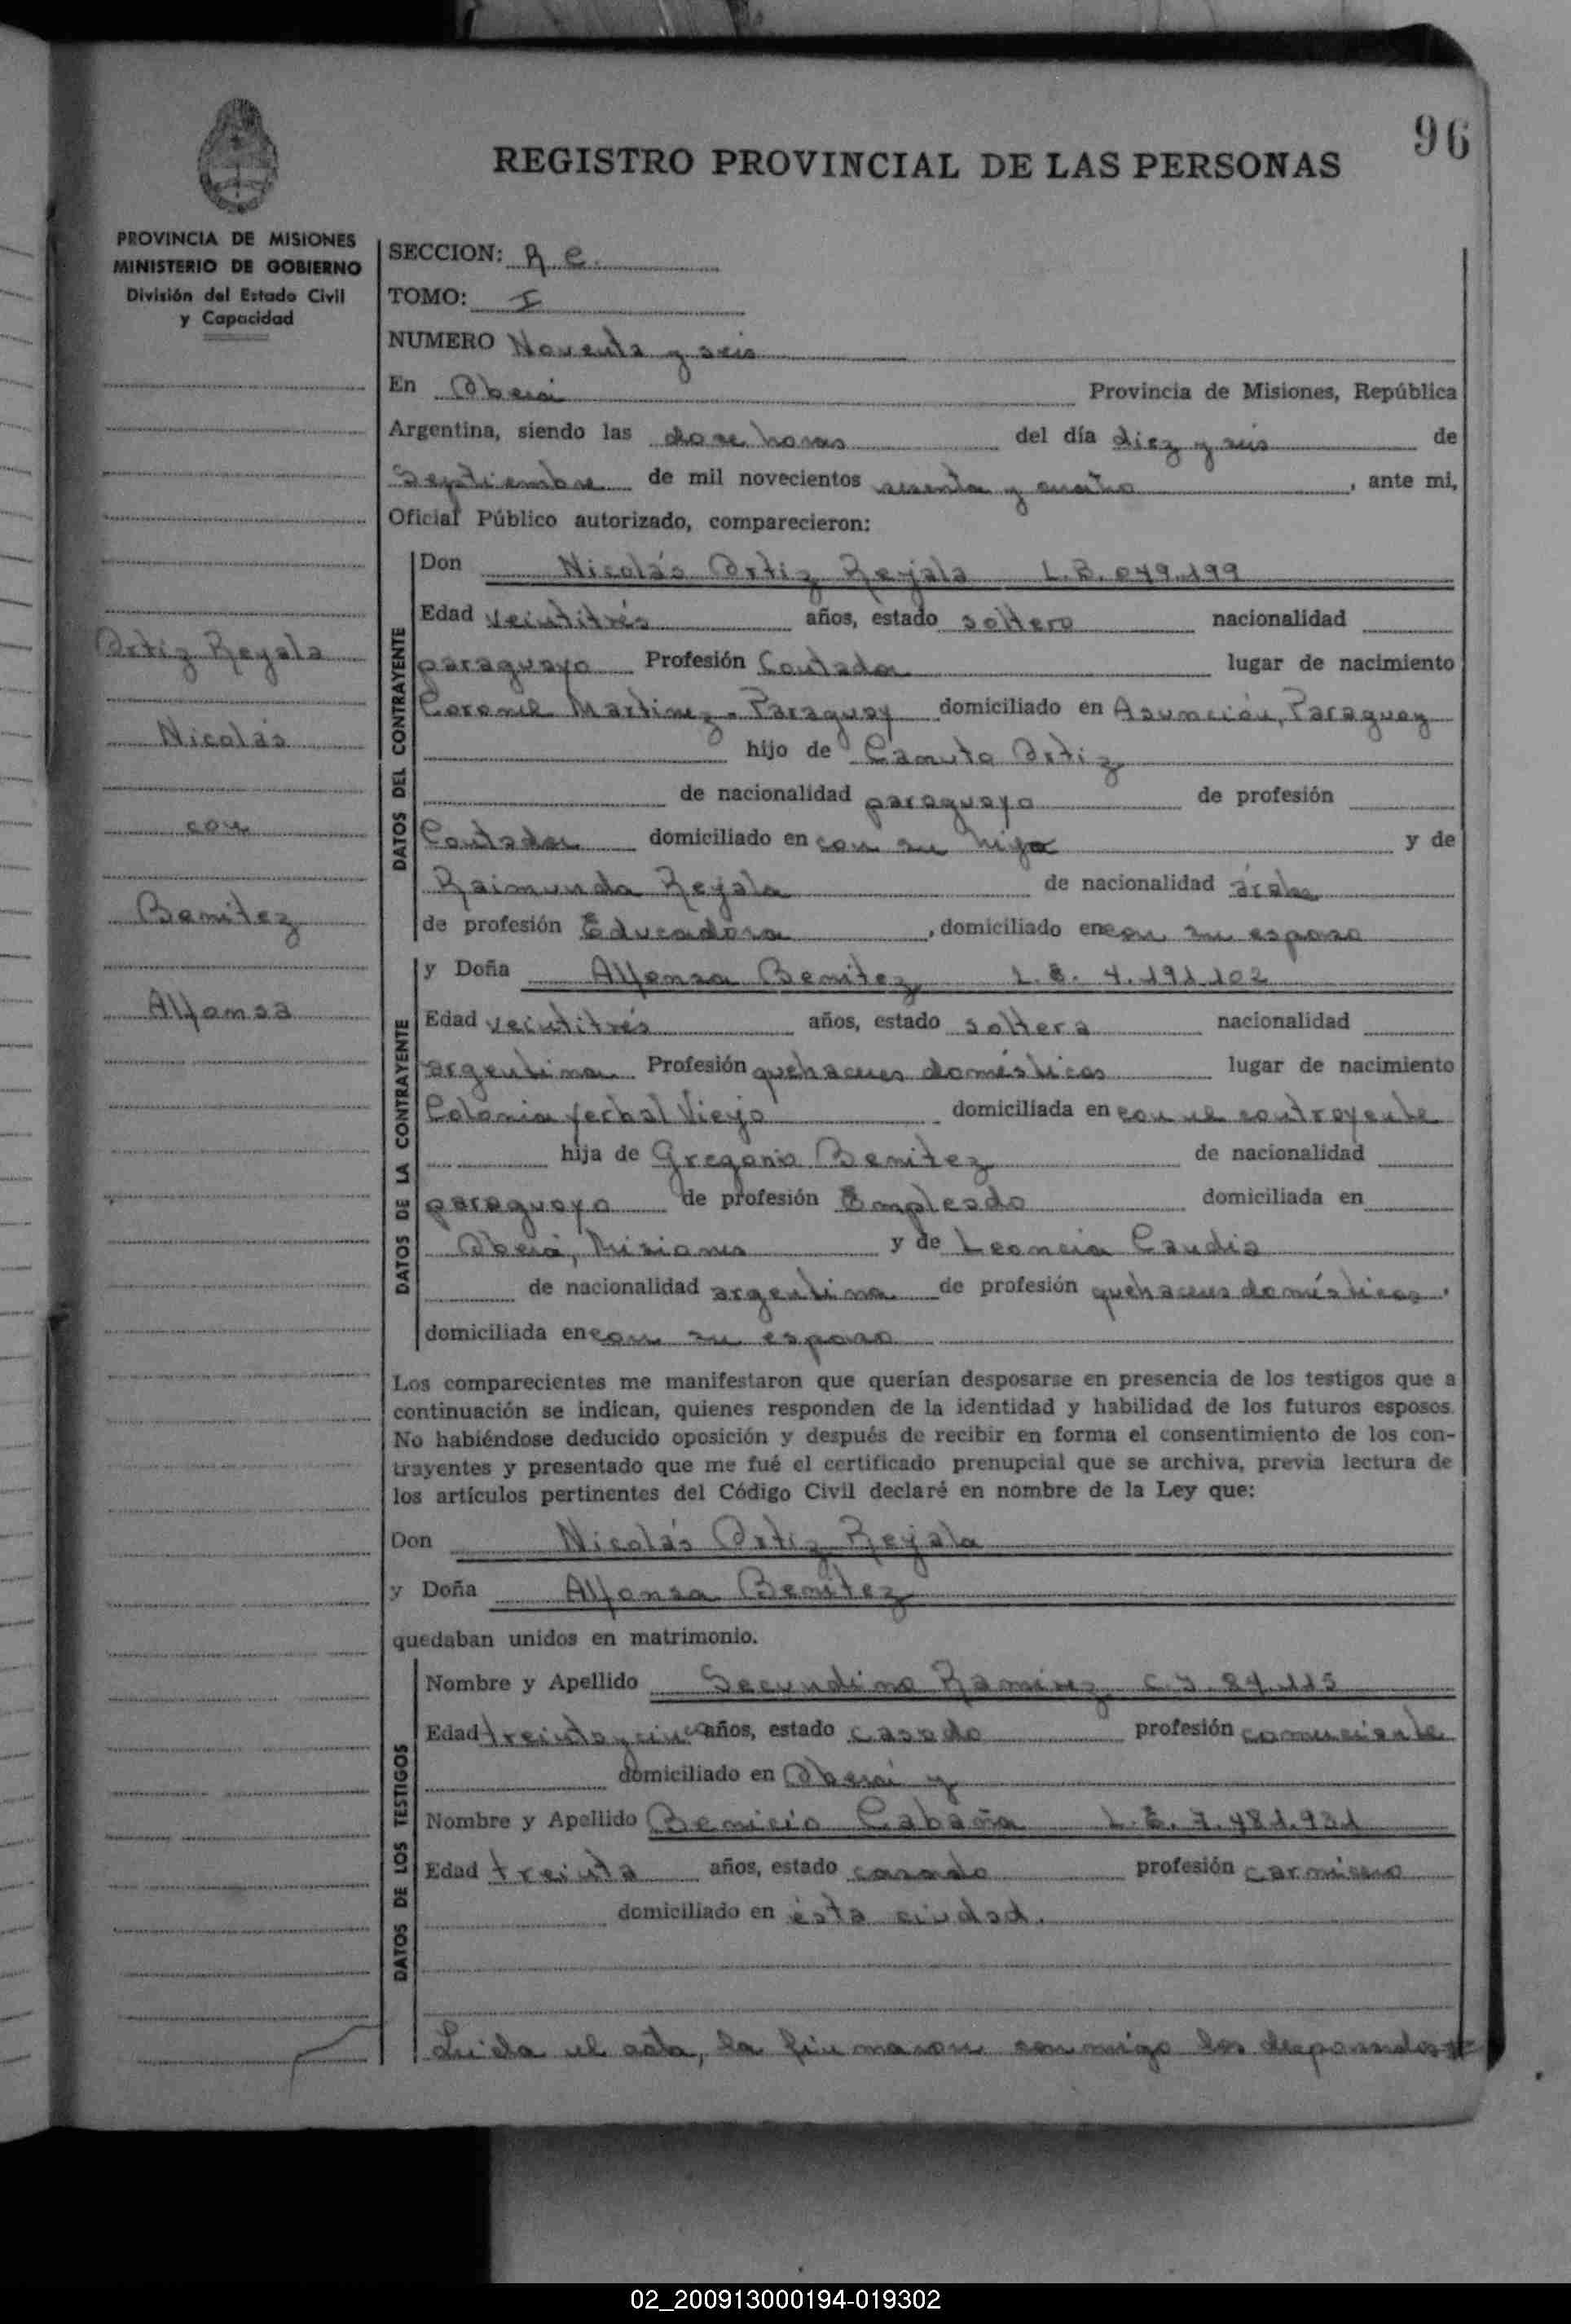 96
REGISTRO PROVINCIAL DE LAS PERSONAS
PROVINCIA DE MISIONES
MINISTERIO DE GOBIERNO
División del Estado Civil
y Capacidad
Ortiz Rejala
Nicolás
con
Benitez
Alfonsa
SECCION: R C.
TOMO: I
NUMERO Noventa y seis
En Oberá Provincia de Misiones, República
Argentina, siendo las doce horas del día diez y seis de
Septiembre de mil novecientos sesenta y cuatro, ante mi,
Oficial Público autorizado, comparecieron:
DATOS DEL CONTRAYENTE
Don Nicolás Ortiz Rejala L.B. 049.199
Edad veintitrés años, estado soltero nacionalidad
paraguayo Profesión Contador lugar de nacimiento
Coronel Martinez - Paraguay domiciliado en Asunción, Paraguay
hijo de Canuto Ortiz
de nacionalidad paraguayo de profesión
Contador domiciliado en con su hijo y de
Raimunda Rejala de nacionalidad
de profesión Educadora, domiciliado en con su esposo
DATOS DE LA CONTRAYENTE
y Doña Alfonsa Benitez L.C. 4.191.102
Edad veintitrés años, estado soltera nacionalidad
argentina Profesión quehaceres domésticos lugar de nacimiento
Colonia Yerbal Viejo domiciliada en con el contrayente
hija de Gregorio Benitez de nacionalidad
paraguayo de profesión Empleado domiciliada en
Oberá, Misiones y de Leoncia Caudia
de nacionalidad argentina de profesión quehaceres domésticos,
domiciliada en con su esposo
Los comparecientes me manifestaron que querían desposarse en presencia de los testigos que a
continuación se indican, quienes responden de la identidad y habilidad de los futuros esposos.
No habiéndose deducido oposición y después de recibir en forma el consentimiento de los con-
trayentes y presentado que me fué el certificado prenupcial que se archiva, previa lectura de
los artículos pertinentes del Código Civil declaré en nombre de la Ley que:
Don Nicolás Ortiz Rejala
y Doña Alfonsa Benitez
quedaban unidos en matrimonio.
DATOS DE LOS TESTIGOS
Nombre y Apellido Secundino Ramirez C.I. 84.115
Edad treinta y cinco años, estado casado profesión comerciante
domiciliado en Oberá y
Nombre y Apellido Benicio Cabaña L.E. 7.481.931
Edad treinta años, estado casado profesión carnicero
domiciliado en ésta ciudad.
Leida el acta, la firmaron conmigo los desposados
02_200913000194-019302